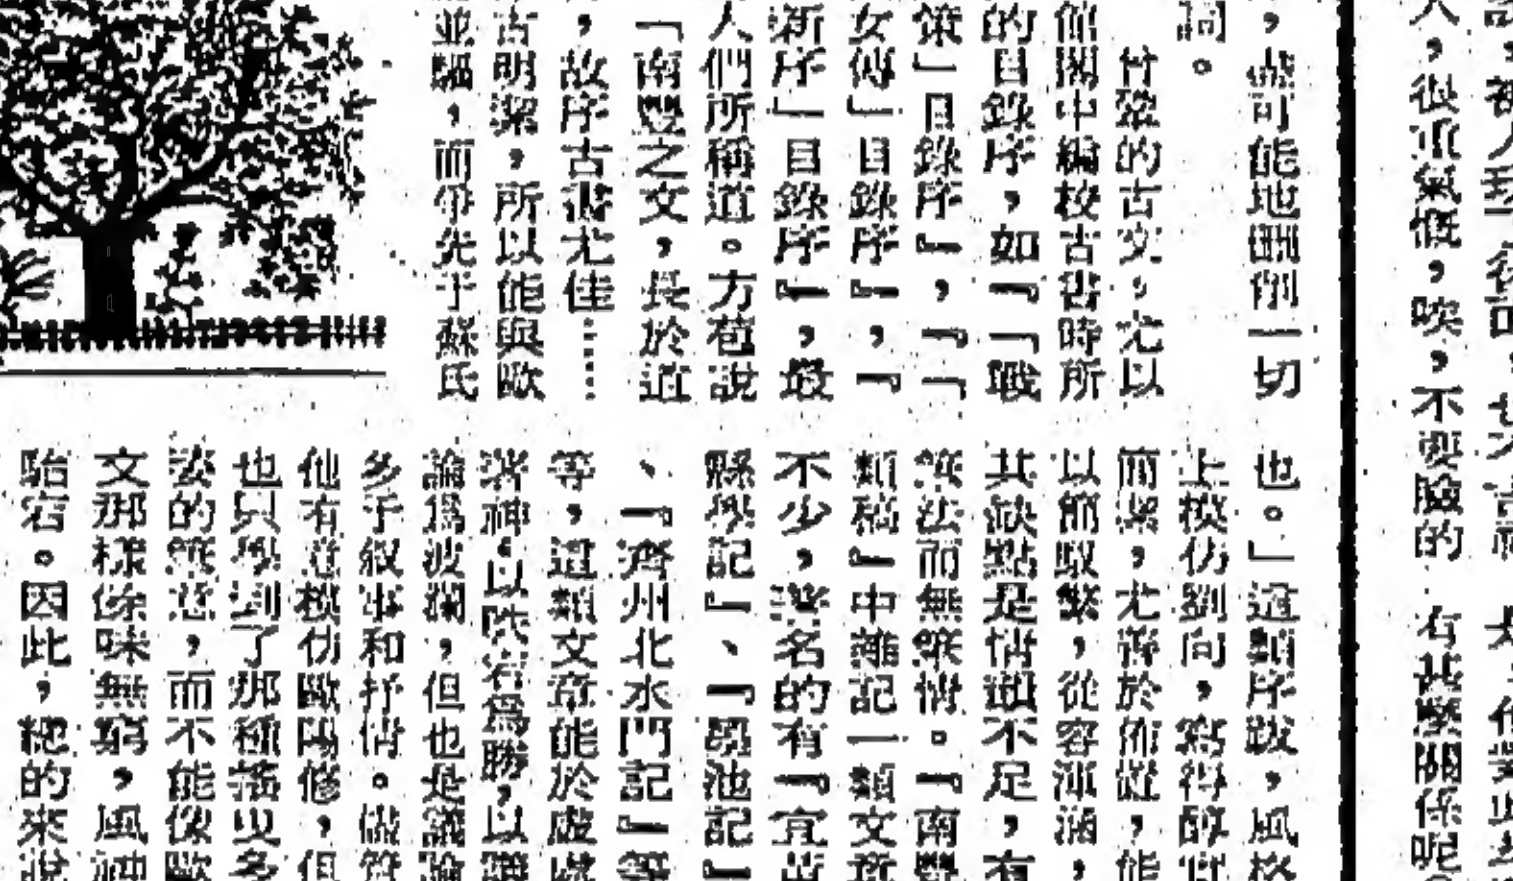 ，盡可能地刪削一切
詞。
曾鞏的古文，尤以
館閣中編校古書時所
的目錄序，如『「戰
策」目錄序』，『「
女傳」目錄序』，『
新序」目錄序』，最
人們所稱道。方苞說
「南豐之文，長於道
，故序古書尤佳……
古明潔，所以能與歐
並驅，而爭先于蘇氏
也。」這類序跋，風格
上模仿劉向，寫得醇
簡潔，尤善於佈置，能
以簡馭繁，從容渾涵，
其缺點是情韻不足，有
策法而無策情。『南豐
類稿』中雜記一類文章
不少，著名的有『宜黃
縣學記』、『墨池記』
、『齊州北水門記』等
等，這類文章能於虛處
著神，以跌宕為勝，以
論為波瀾，但也是議論
多于敍事和抒情。儘管
他有意模仿歐陽修，但
也只學到了那種搖曳多
姿的筆意，而不能像歐
文那樣餘味無窮，風神
駘宕。因此，總的來說
人，很重氣慨，唉，不要臉的
有甚麼關係呢